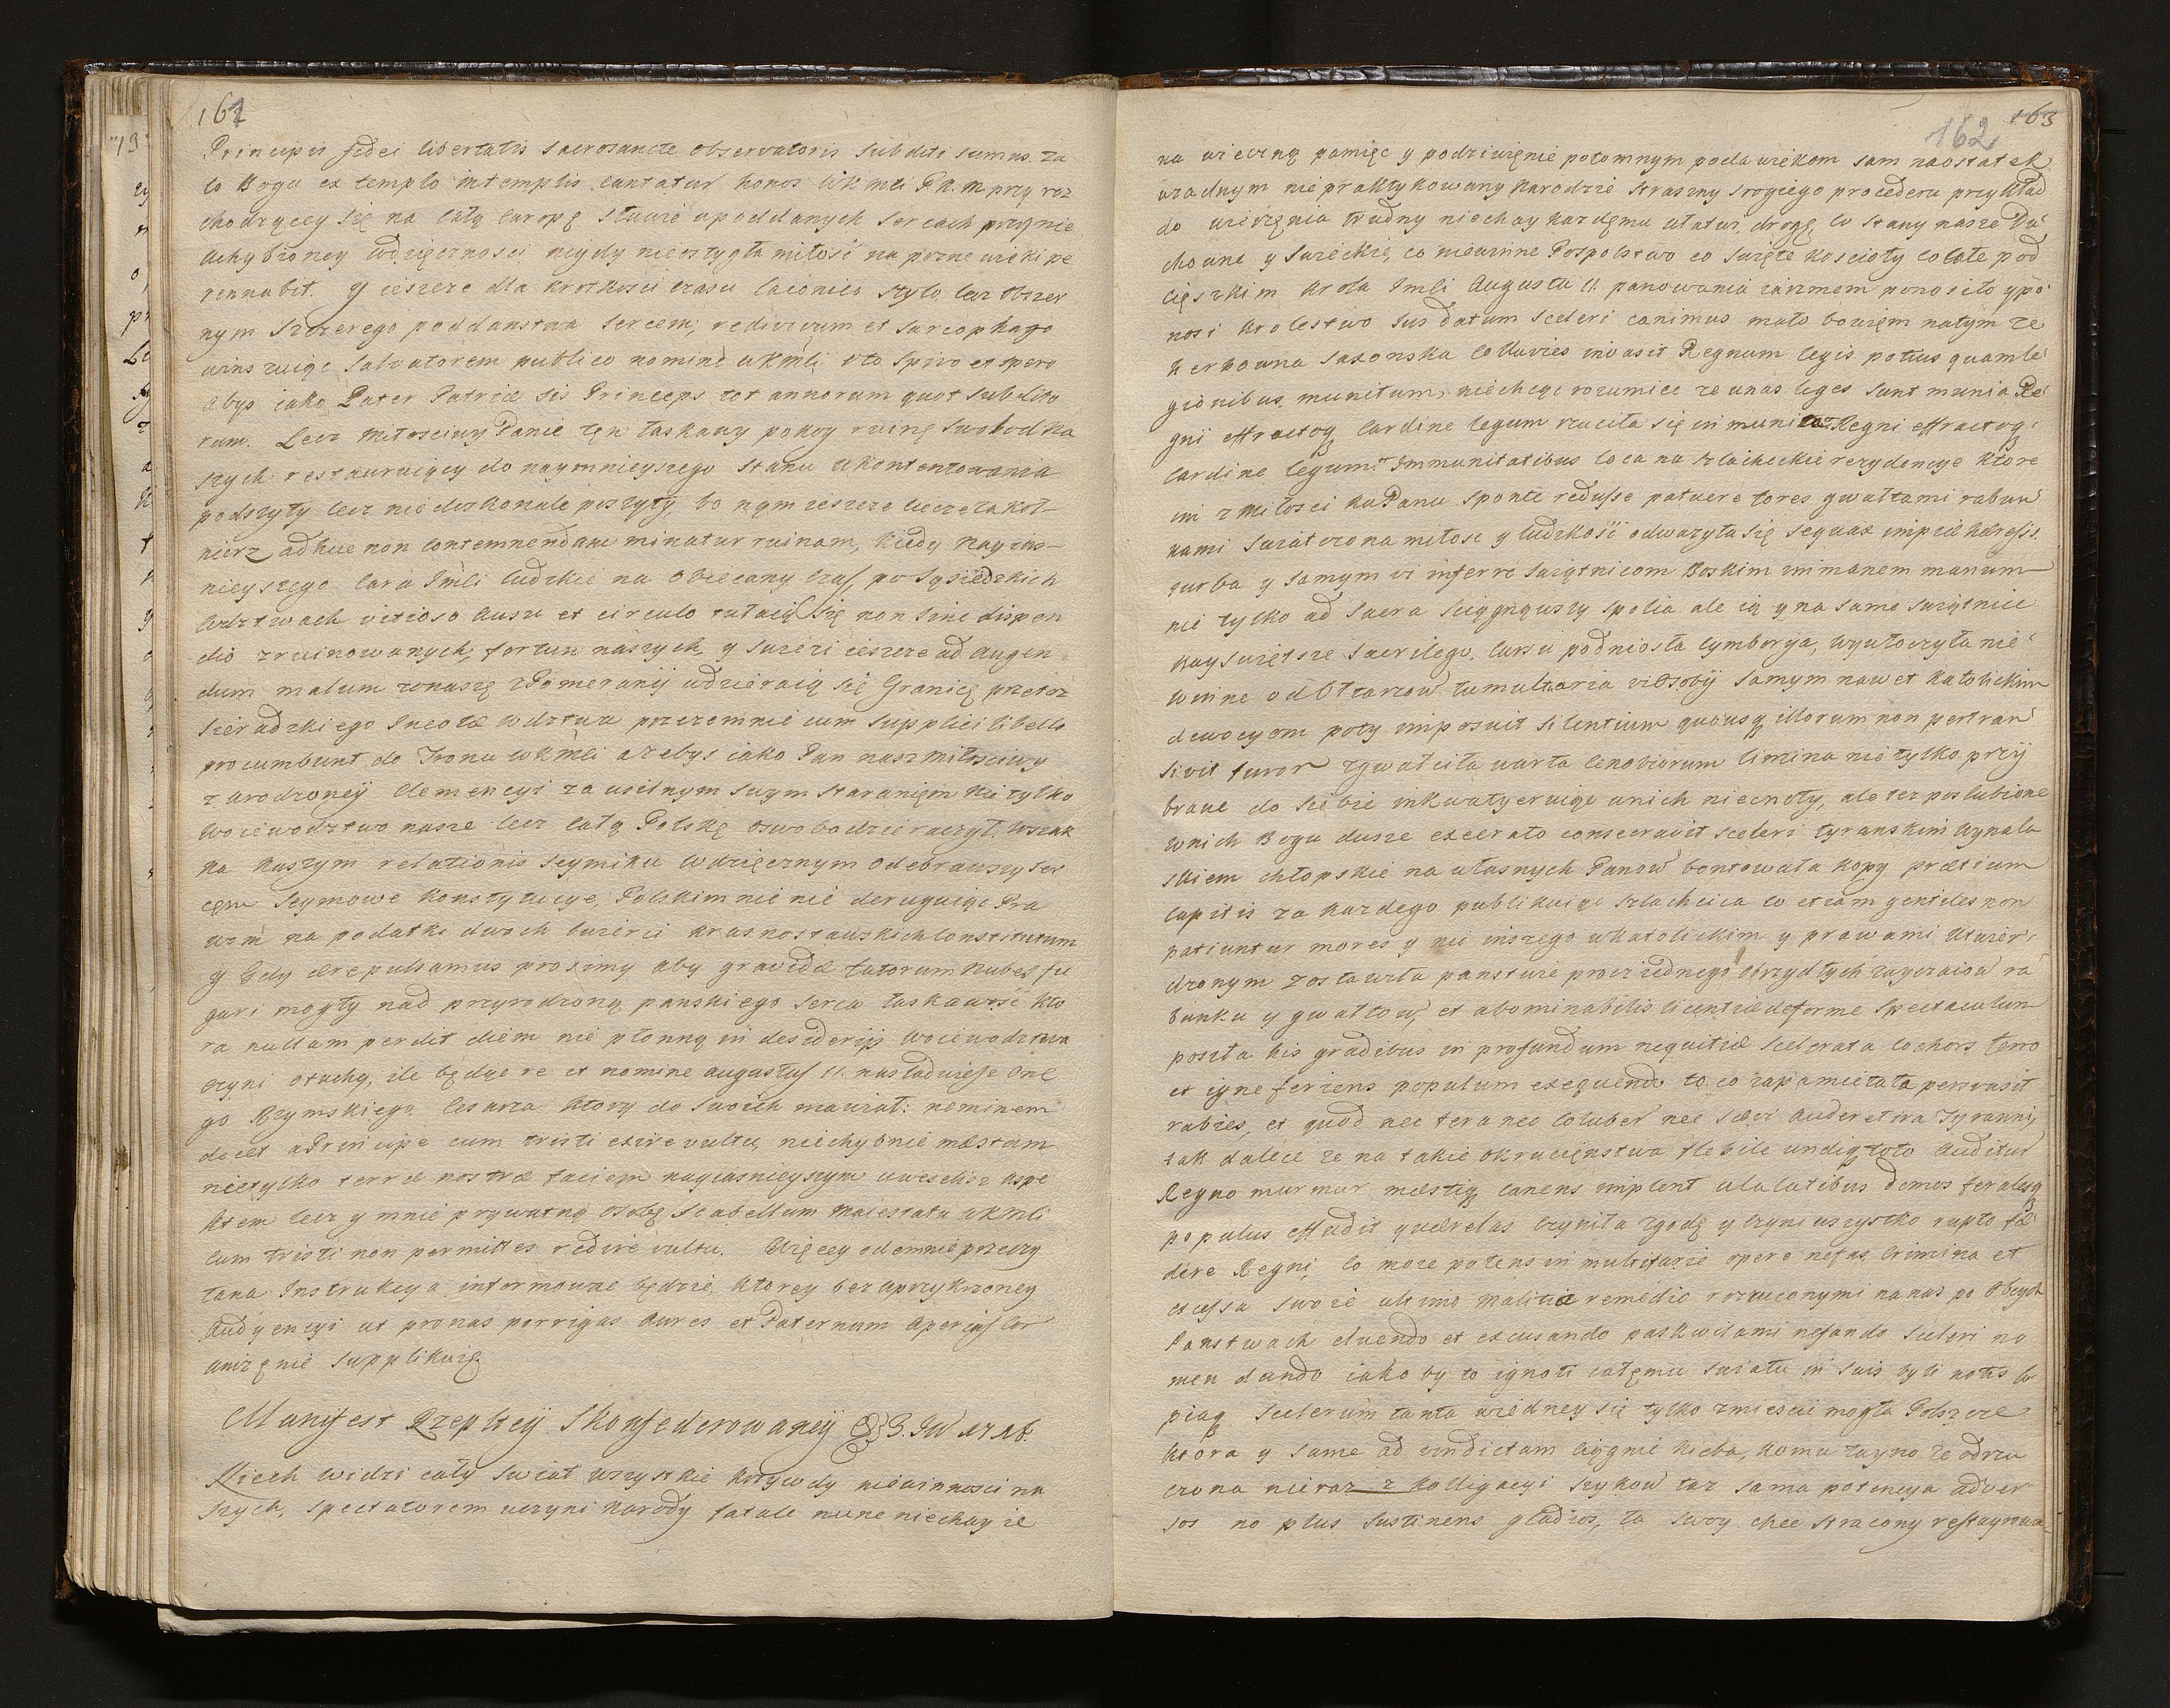 161
Principis fidei libertatis sacrosancte observatoris subditi sumus. za
to Bogu ex templo in templis cantatur honos WKMci P. N. M przy roz
chodzącey się na całą Europę sławie upoddanych sercach przynie
uchybioney wdzięcznosci nigdy nieostygła miłość na pozne wieki pe
rennabit. y ieszcze dla krotkosci czasu laconico stylo, lecz obszer
nym szczerego poddanstwa sercem, redivivum et sarcophago
winszuiąc Salvatorem publico nomine WKMci, oto spiro et spero
abyś iako Pater Patriæ sis Princeps tot annorum quot subdito
rum. Lecz Miłosciwy Panie ten łaskawy pokoy ruinę swobod na
szych restauruiący do naymnieyszego stanu ukontentowania
podszyty lecz niedoskonale poszyty bo nam ieszcze za koł-
nierz adhuc non contemnendam minatur ruinam, kiedy Nayias-
nieyszego Cara Jmći ludzkie na obiecany czas, po sąsiedzkich
wdztwach vitioso ausu et circulo tułaiąc się non sine dispen
dio zruinowanych, fortun naszych, y swieżi ieszcze ad augen
dum malum wnaszę z Pomeranij udzieraią się Granicę przetoż
Sieradzkiego Incolæ wdztwa przezemnie cum supplici libello
procumbunt do Tronu WKMci ażebyś iako Pan nasz miłosciwy
z wrodzoneÿ Clemencyi za usilnym swym staraniem nie tylko
Woiewodztwo nasze lecz całą Polskę oswobodzić raczył. Wszak
na naszym relationis seymiku wdzięcznym odebrawszy ser
cem Seymowe konstytucye, Polskim nie nie deruguiąc Pra
wom na podatki dwoch cwierci krasnostawskich constitutum
y Gdy ære pulsamus prosimy aby gravidæ fatorum nubes fu
gari mogły nad przyrodzoną panskiego serca łaskawość kto
ra nullam perdit diem nie płonną in desiderijs woiewodztwa
czyni otuchę, ile będąc re et nomine Augustus II. nasladuiesz one
go Rzymskiego Cesarza ktory do swoich mawiał: neminem
decet a Principe cum tristi exire vultu, niechybnie mæstam
nietylko terræ nostræ faciem nayiasnieyszym uweselisz aspe
ktem lecz y mnie prywatną osobę Scabellum Maiestatu WKMci
cum tristi non permittes redire vultu. Więcey odemnie przeczy
tana Instrukcya informować będzie, ktorey bez uprzykrzoney
Audyencyi ut pronas porrigas aures et Paternum aperias Cor
uniżenie supplikuię.
Manifest Rzepltey Skonfederowaneÿ
Niech widzi cały swiat wszystkie krzywdy niewinnosci na
szych, spectatorem uczyni narody fatale nunc niechay ie
162 163
na wieczną pamięc y podziwięnie potomnym poda wiekom sam naostatek
wzadnym nie praktykowany Narodzie straszny srogiego procederu przykład
do wierzęnia trudny niechay kazdęmu ułatwi drogę, co stany nasze Du
chowne y swieckie, co niewinne Pospolstwo co święte koscioły co całe pod
cięszkim krola Jmći Augusta II. panowania iarzmem ponosiło y po
nosi krolestwo Jus datum sceleri canimus mało bowięm natym że
kerkowna Saxonska colluvies invasit Regnum legis potius quam le
gionibus munitum, niechcąc rozumiec ze unas leges sunt munia Re
gni effractoq cardine legum rzuciła się in munita Regni effractoq
cardine legum. Immunitatibus loca na szlacheckie rezydencye ktore
im z Miłosci ku Panu sponte reduste patuere fores gwałtami rabun
kami swiatczona miłosc y ludzkość odważyła się sequax impiæ hæresis.
turba y samym vi inferre swiątnicom Boskim immanem manum
nie tylko ad sacra sciągnąwszy spolia ale ią y na same swiątnice
nayświętsze sacrilego. ausu podniosła cymborya, wywłoczyła nie
winne od Ołtarzow tumultaria vi osoby samym nawet katolickim
dewocyom poty imposuit silentium quousq illorum non pertran
sivit furor zgwałciła warta cenobiorum limina nie tylko przy
braue do siebie inkwatyeruiąc unich niecnoty, ale tez poslubione
wnich Bogu dusze execrato consecravit sceleri tyranskim wynala
skiem chłopskie na własnych Panow bontowała kopy prætium
capitis za kazdego publikuiąc szlachcica co etiam gentiles non
patiuntur mores y nic inszego wkatolickim y prawami utwier
dzonym zostawiła panstwie procz iednego obrzydłych zwyczaiow ra
bunku y gwałtow, et abominabilis licentiæ deforme Spectaculum
poszła his gradibus in profundum nequitiæ scelerata cohors ferro
et igne feriens populum exequendo to co zapamiętała persvasit
rabies, et quod nec fera nec coluber nec sævi auderet ira Tyranni
tak dalece ze na takie okrucięnstwa flebile undiq toto auditur
Regno murmur mæstiq canens implent ululatibus domos feralesq
populus effudit quærelas czyniła zgodę y czyni wszystko rupto fæ
dere Regni, co more potens in multifarie opere nefas, crimina et
excessa swoie ultimo malitiæ remedio rozrzuconymi na nas po obcych
Panstwach eluendo et excusando paskwilami nefando sceleri no
men dando iako by to ignoti całęmu swiatu in suis byli notis co
piaq Scelerum tanta wiedney się tylko zmiescic mogła Polszcze
ktora y same ad vindictam ciągnie nieba, komu tayno ze odrzu
czona nieraz z kolligacyi szykow taz sama potencya adver
sos no plus sustinens gladios, ta swoy chce stracony restaurowa